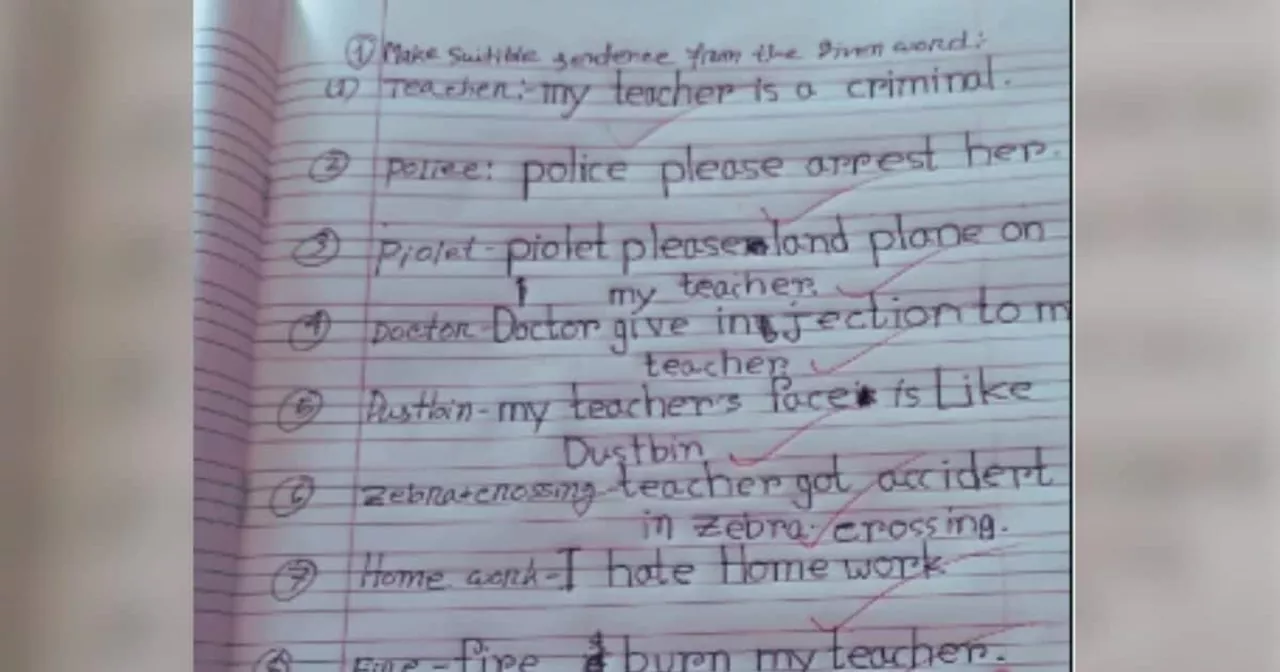 ① Make Suitible sendence from the Given word:
(1) Teacher:- my teacher is a criminal.
② Police: police please arrest her.
③ Piolet - piolet please land plane on
my teacher.
④ Doctor - Doctor give injection to m
teacher.
⑤ Dustbin - my teacher's face is Like
Dustbin
⑥ Zebra crossing - teacher got accident
in zebra crossing.
⑦ Home work - I hate Home work
Fire - fire burn my teacher.